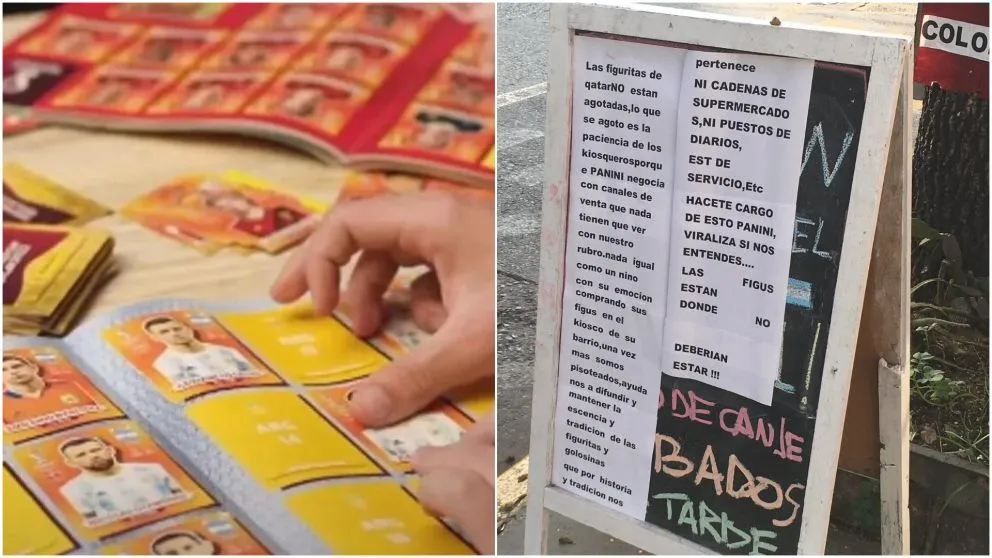 ARG
14
Las figuritas de
qatarNO estan
agotadas,lo que
se agoto es la
paciencia de los
kiosquerosporqu
e PANINI negocia
con canales de
venta que nada
tienen que ver
con nuestro
rubro.nada igual
como un nino
con su emocion
comprando sus
figus en el
kiosco de su
barrio,una vez
mas somos
pisoteados,ayuda
nos a difundir y
mantener la
escencia y
tradicion de las
figuritas y
golosinas
que por historia
y tradicion nos
pertenece
NI CADENAS DE
SUPERMERCADO
S,NI PUESTOS DE
DIARIOS,
EST DE
SERVICIO,Etc
HACETE CARGO
DE ESTO PANINI,
VIRALIZA SI NOS
ENTENDES....
LAS FIGUS
ESTAN
DONDE NO
DEBERIAN
ESTAR !!!
N
EL
DE CANJE
BADOS
TARDE
COLO